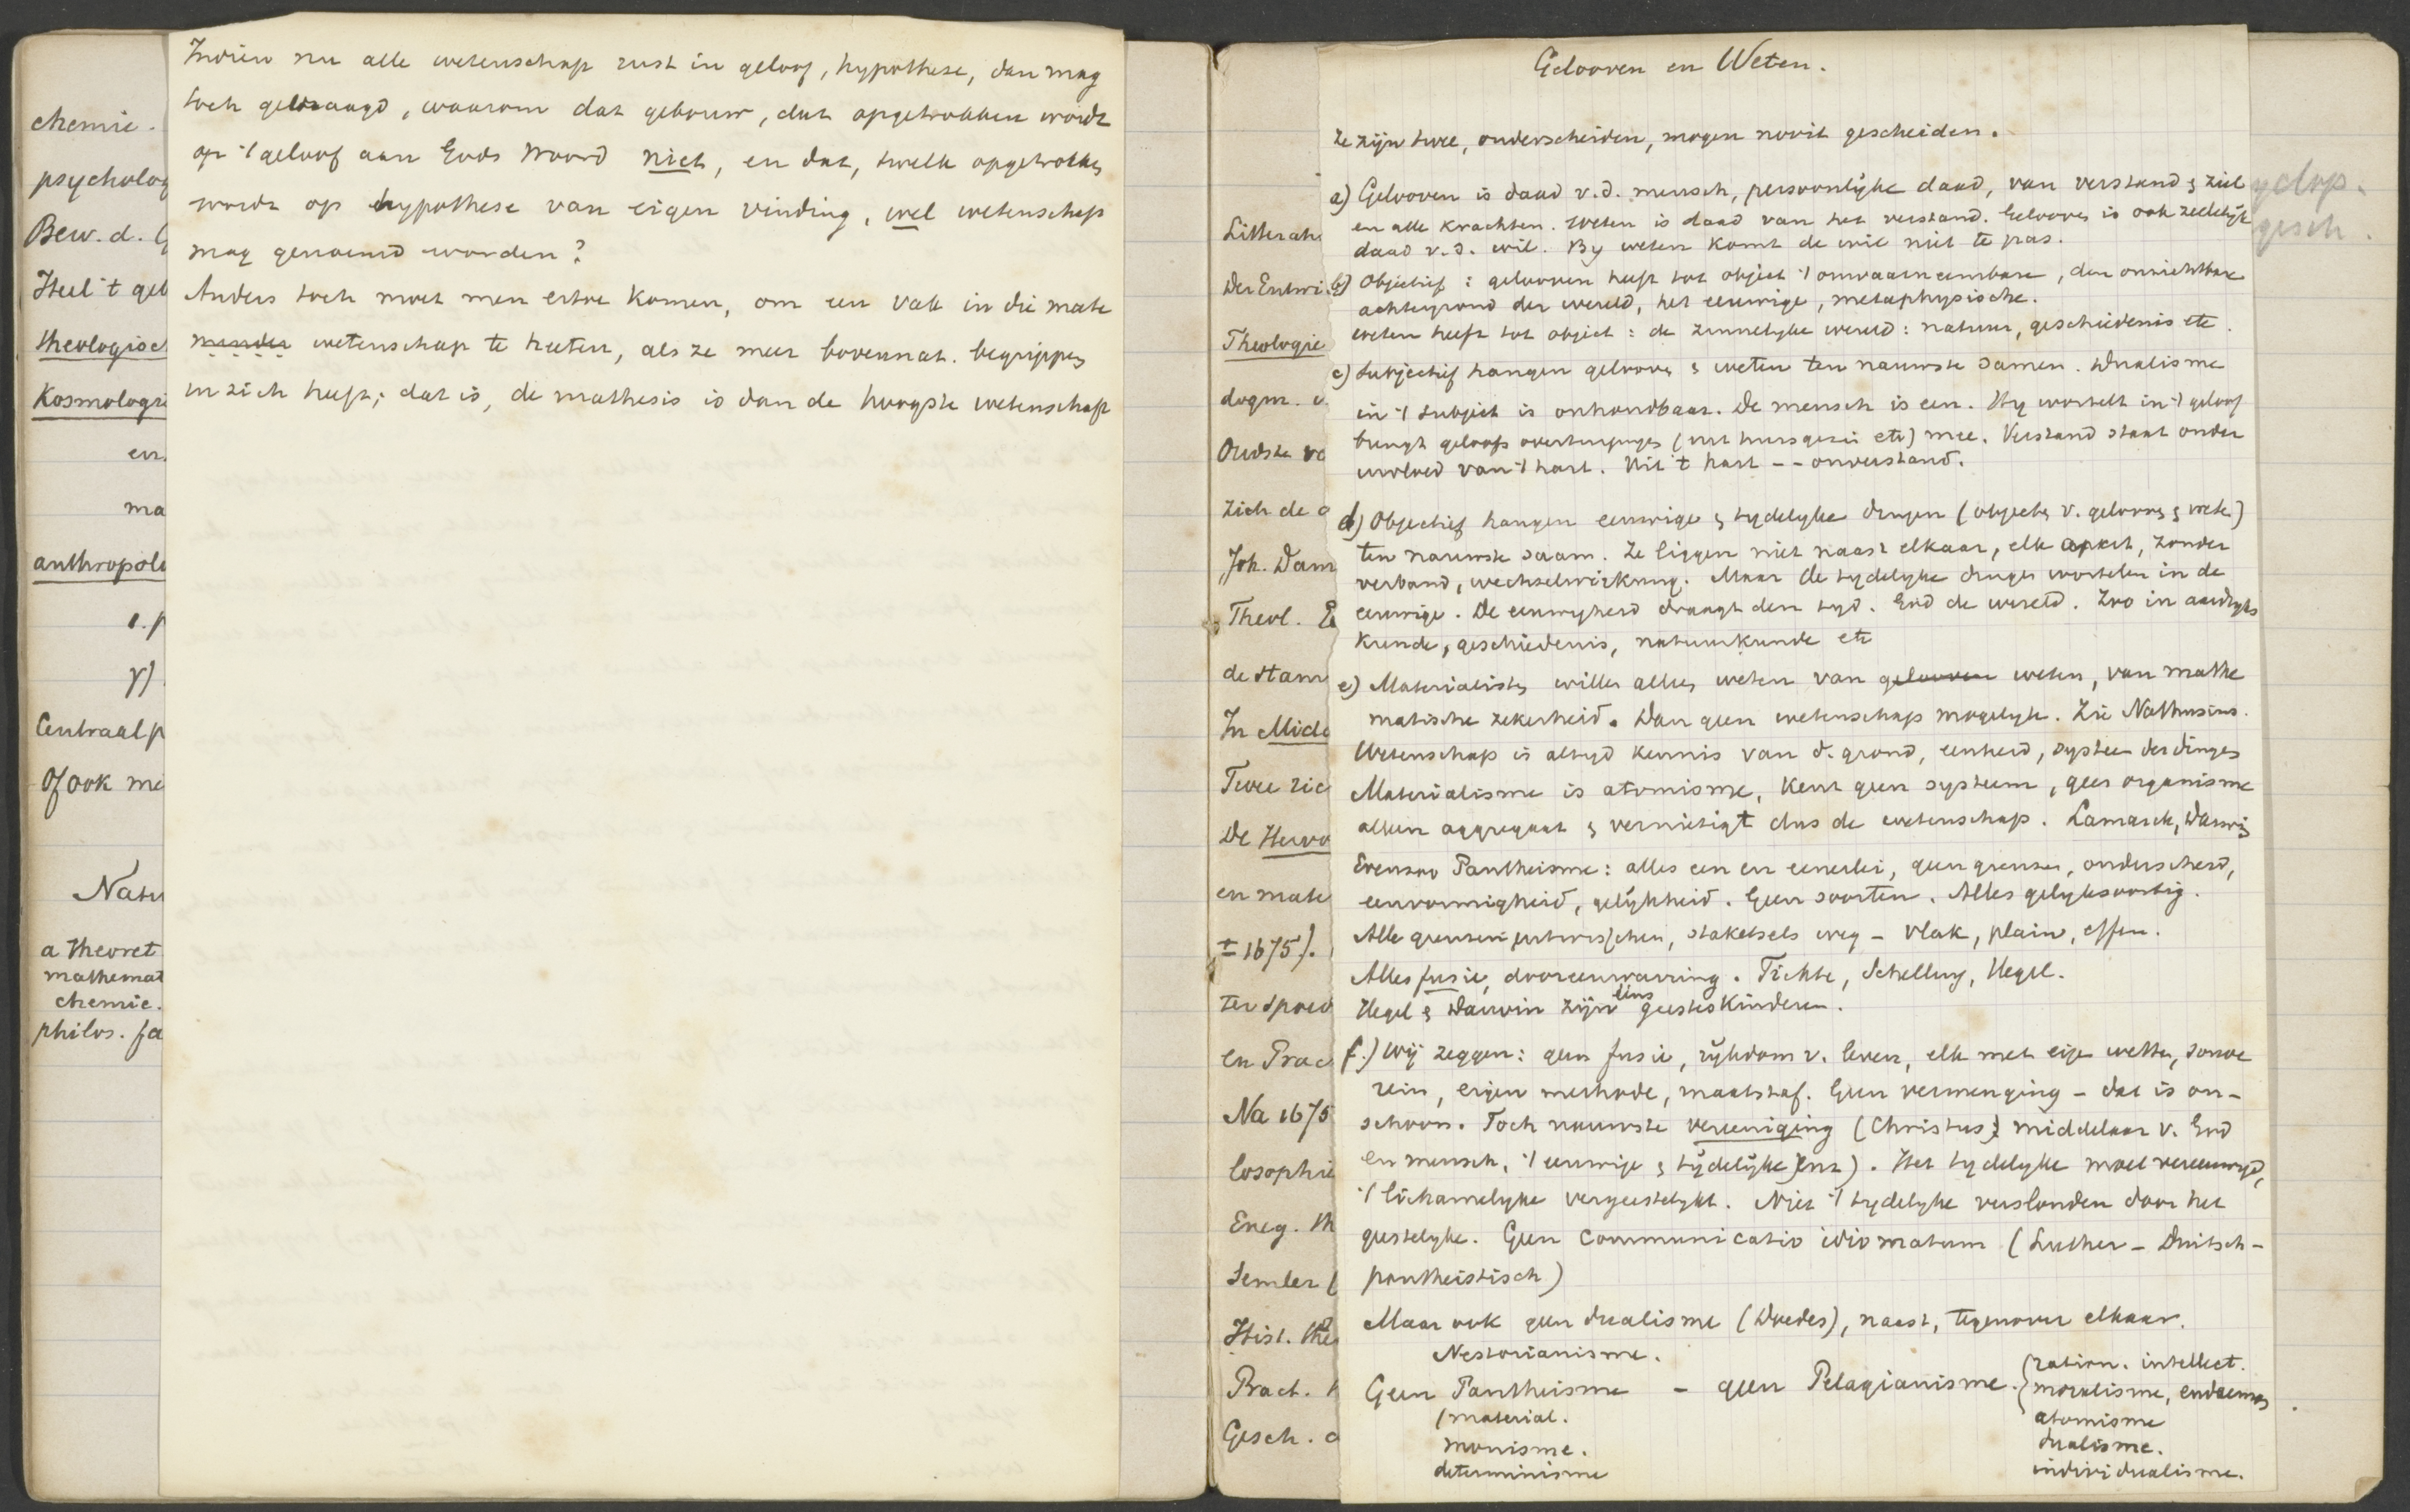 Indien nu alle wetenschap rust in geloof, hypothese, dan mag
toch gevraagd, waarom dat gebouw, dat opgetrokken wordt
op 't geloof aan Gods Woord niet, en dat, twelk opgetrokken
wordt op hypothese van eigen vinding, wel wetenschap
mag genoemd worden?
Anders toch moet men ertoe komen, om een vak in die mate
minder wetenschap te heeten, als ze meer bovennat. begrippen
in zich heeft; dat is, de mathesis is dan de hoogste wetenschap
chemie.
psycholog
Bew. d. G
Heel 't geb
theologisch
Kosmologi
en
ma
anthropolo
γ)
Centraal p
Of ook me
Natu
a theoret
mathemat
chemie.
philos. fa
Gelooven en Weten.
Ze zijn twee, onderscheiden, mogen nooit gescheiden.
a) Gelooven is daad v.d. mensch, persoonlijke daad, van verstand & ziel
en alle krachten. Weten is daad van het verstand. Gelooven is ook zedelijk
daad v.d. wil. By weten komt de wil niet te pas.
b) Objectief: gelooven heeft tot object 't onwaarneembare, den onzichtbare
achtergrond der wereld, het eeuwige, metaphysische.
weten heeft tot object: de zinnelyke wereld: natuur, geschiedenis etc.
c) Subjectief hangen gelooven & weten ten nauwste samen. Dualisme
in 't subject is onhoudbaar. De mensch is een. Hy wortelt in 't geloof
brengt geloofsovertuigingen (uit huisgezin etc) mee. Verstand staat onder
invloed van 't hart. Uit 't hart -- onverstand.
d) Objectief hangen eeuwige & tydelyke dingen (objecten v. gelooven & weten)
ten nauwste saam. Ze liggen niet naast elkaar, elk apart, zonder
verband, wechselwirkung. Maar de tydelyke dingen wortelen in de
eeuwige. De eeuwigheid draagt den tyd. God de wereld. Zoo in aardryks
kunde, geschiedenis, natuurkunde etc
e) Materialisten willen alles weten van gelooven weten, van mathe
matische zekerheid. Dan geen wetenschap mogelyk. Zie Nathusius.
Wetenschap is altyd kennis van d. grond, eenheid, systeem der dingen
Materialisme is atomisme, kent geen systeem, geen organisme
alleen aggregaat & vernietigt dus de wetenschap. Lamarck, Darwin
Evenzoo Pantheisme: alles een en eenerlei, geen grenzen, onderscheid,
eenvormigheid, gelijkheid. Geen soorten. Alles gelyksoortig.
Alle grenzen uitwisschen, staketsels weg - vlak, plain, effen.
Alles fusie, dooreenwarring. Fichte, Schelling, Hegel.
Hegel & Darwin zijn eens geesteskinderen.
f.) Wij zeggen: geen fusie, rijkdom v. leven, elk met eigen wetten, souve
rein, eigen methode, maatstaf. Geen vermenging - dat is on-
schoon. Toch nauwste vereeniging (Christus) middelaar v. God
en mensch, 't eeuwige & tijdelijke enz). Het tydelyke moet vereeuwigd,
't lichamelyke vergeestelykt. Niet 't tydelyke verslonden door het
geestelyke. Geen communicatio idiomatum (Luther - Duitsch-
pantheistisch)
Maar ook geen dualisme (Doedes), naast, tegenover elkaar.
Nestorianisme.
Geen Pantheisme - geen Pelagianisme.
(material.
monisme.
determinisme
ration. intellect.
moralisme, eudaemon
atomisme
dualisme.
individualisme.
Litterat
Der Entwi
Theologie
dogm.
Oudste vo
zich de
Joh. Dam
Theol.
de stam
In Midd
Twee ric
De Hervo
en mate
± 1675).
ter spoed
en Prac
Na 1675
losophie
Eneg. th
Semler (
Hist. the
Pract.
Gesch.
yclop.
gesch.